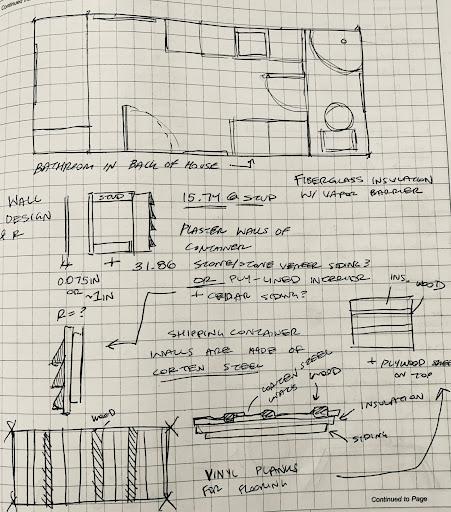 Continued fro
BATHROOM IN BACK OF HOUSE →
FIBERGLASS INSULATION
W/ VAPOR BARRIER
WALL
DESIGN
& R
STUD
15.74 @ STUD
PLASTER WALLS OF
CONTAINER
+ 31.86
0.075IN
OR ~1IN
R = ?
STONE/STONE VENEER SIDING?
OR PLY-LINED INTERIOR
+ CEDAR SIDING?
INS. WOOD
+ PLYWOOD
ON TOP
SHIPPING CONTAINER
WALLS ARE MADE OF
CORTEN STEEL
CORTEN STEEL
WALLS
WOOD
INSULATION
SIDING
WOOD
VINYL PLANKS
FOR FLOORING
Continued to Page